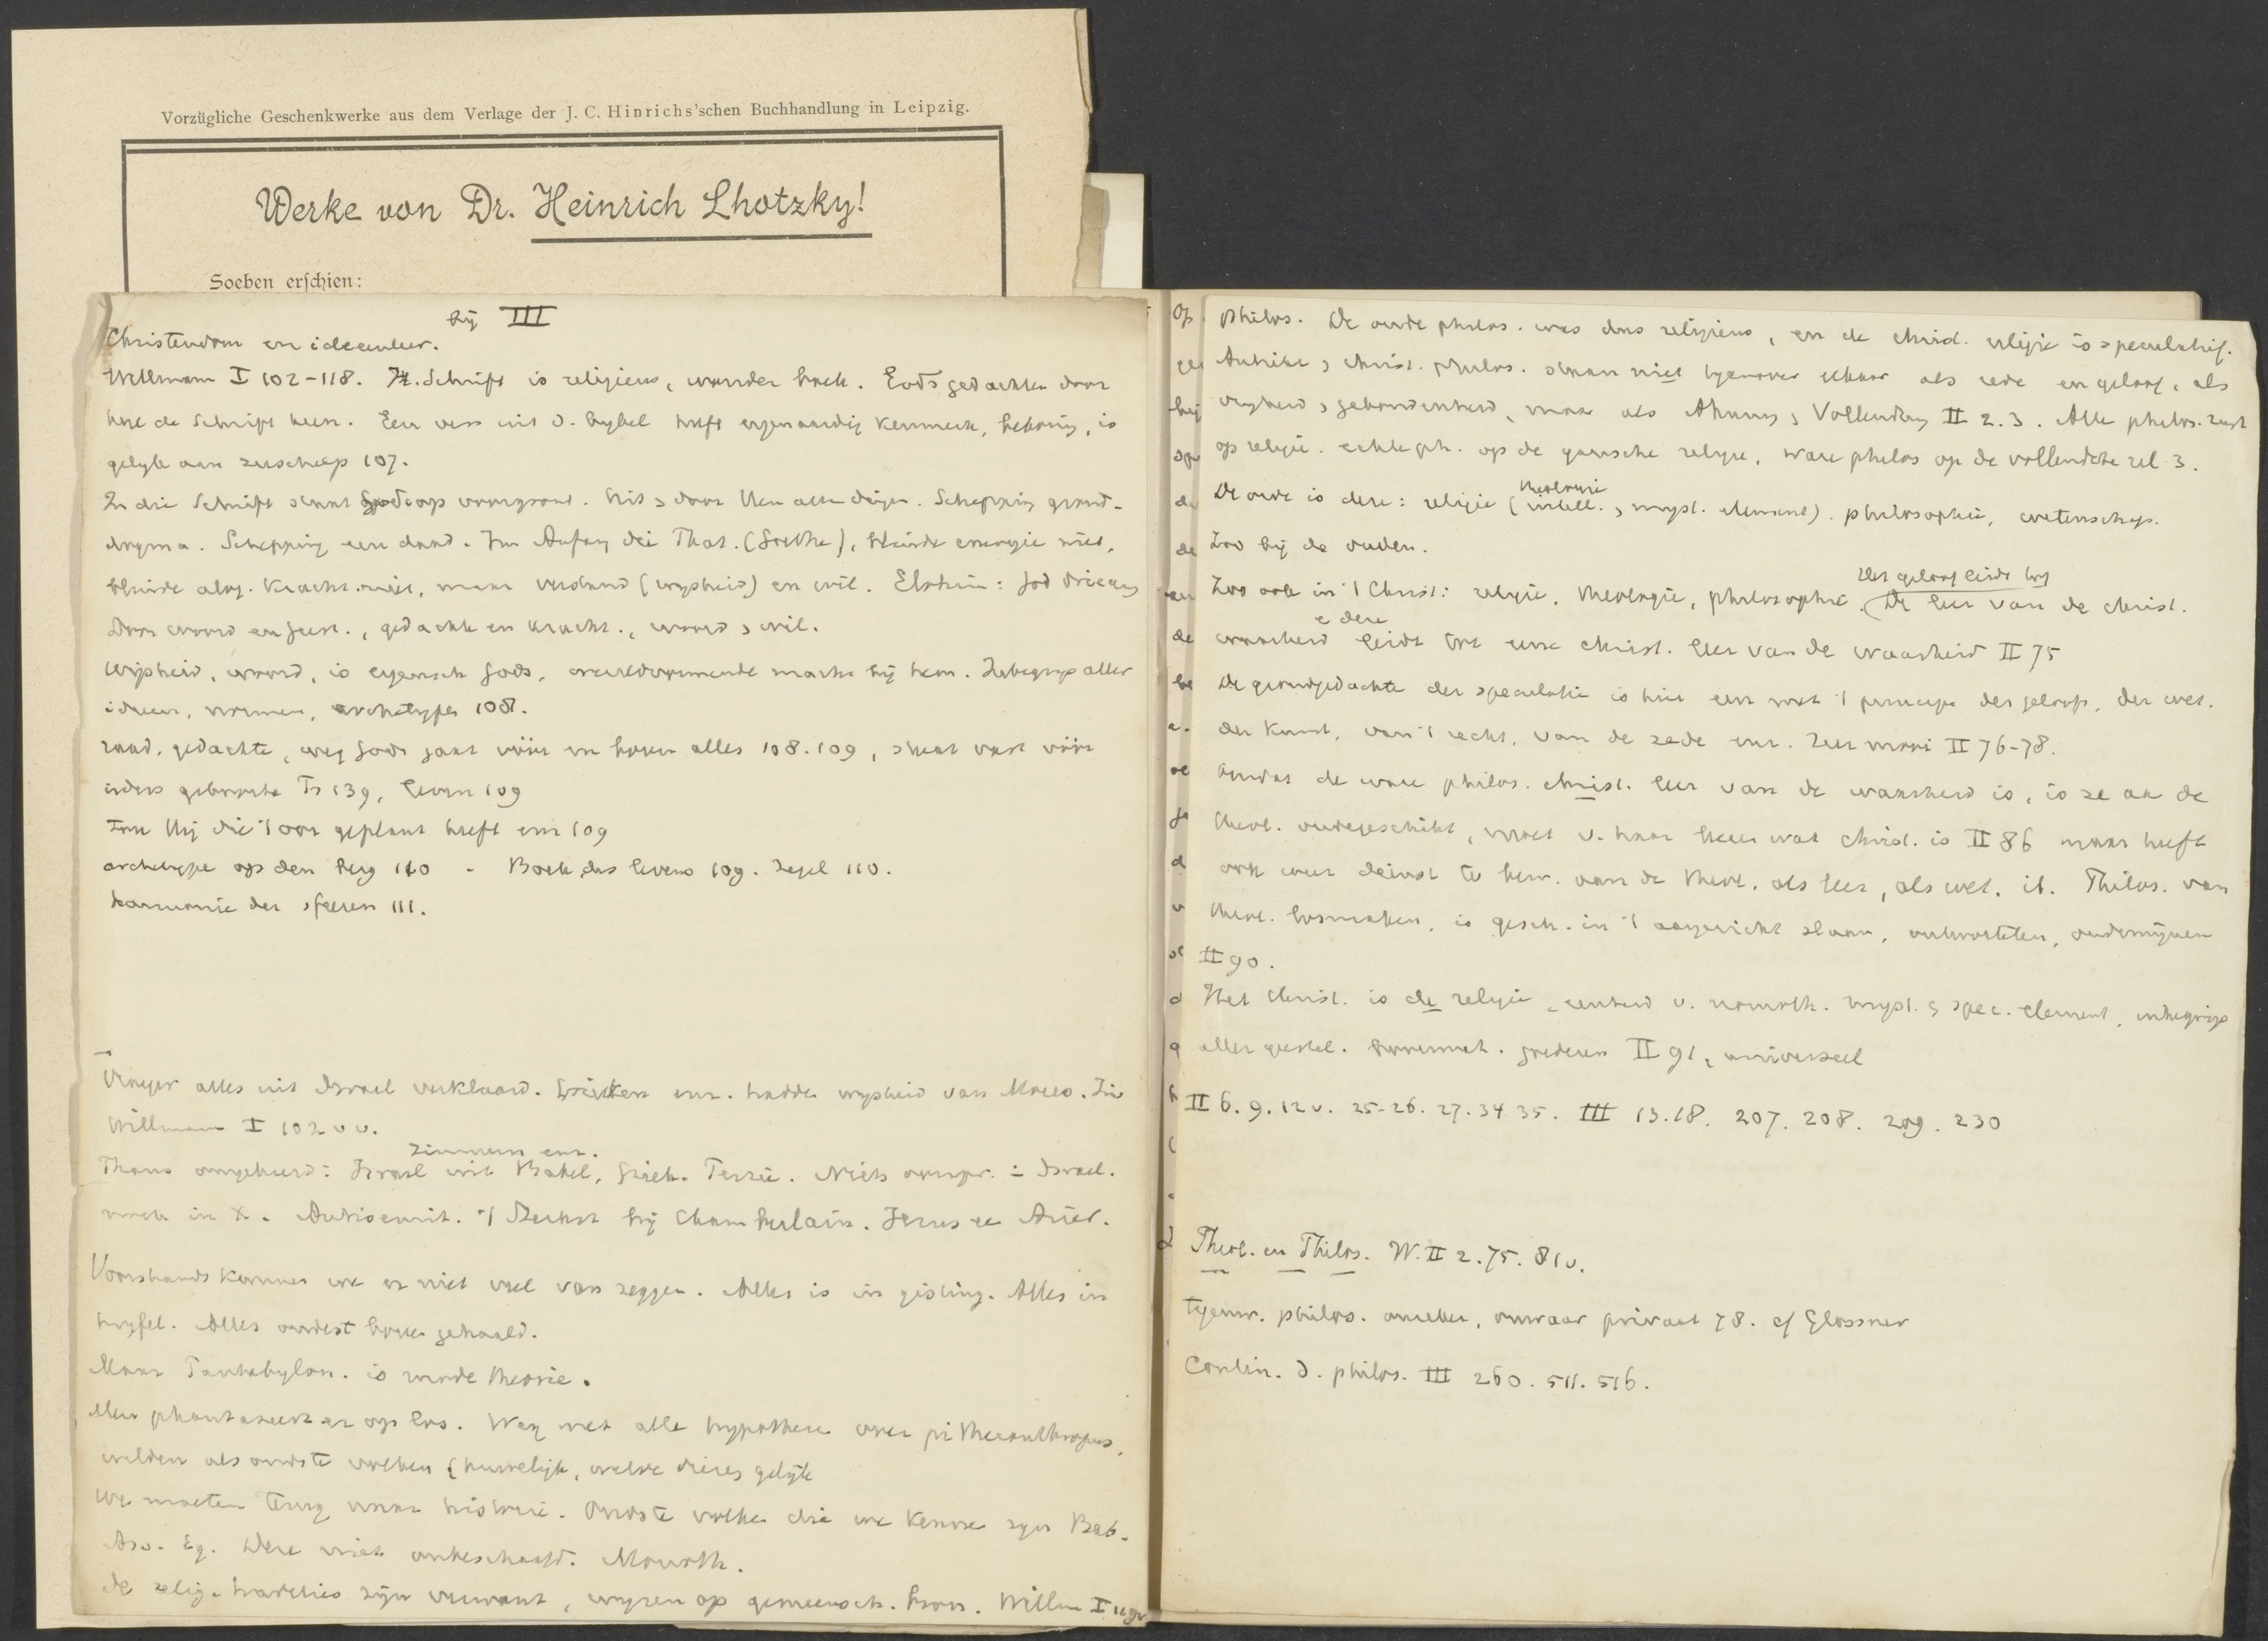 Vorzügliche Geschenkwerke aus dem Verlage der J. C. Hinrichs'schen Buchhandlung in Leipzig.
Werke von Dr. Heinrich Lhotzky!
Soeben erschien:
bij III
Christendom en ideeenleer.
Willmann I 102-118. H. Schrift is religieus, wonder boek. Gods gedachten door
heel de Schrift heen. Een vers uit d. bybel heeft eigenaardig kenmerk, is
gelyk aan 107.
In die Schrift staat Godsop voorgrond. Uit & door Hem alle dingen. Schepping grond-
dogma. Schepping een daad. Im Anfang die That. (Goethe), blinde energie niet,
blinde alg. Kracht niet, maar verstand (wysheid) en wil. : God drieeenig
Door woord en geest., gedachte en kracht., woord & wil.
Wijsheid, woord, is eigensch Gods, wereldvormende macht bij hem. Inbegrip aller
ideeen, normen, archetypen 108.
raad, gedachte, weg Gods gaat vóór en boven alles 108.109, staat vast vóór
ieders geboorte Ps 139, leven 109
Zou Hij die 't oor geplant heeft enz 109
archetype op den berg 110 - Boek des levens 109. Zegel 110.
harmonie der sfeeren 111.
Vroeger alles uit Israel verklaard. Grieken enz. hadden wysheid van Mozes. Zie
Willmann I 102 vv.
Zimmern enz.
Thans omgekeerd: Israel uit Babel, Griek. Perzië. Niets oorspr. in Israel.
noch in X. Antisemit. 't Sterkst bij Chamberlain. Jezus een Ariër.
Voorshands kunnen we er niet veel van zeggen. Alles is in gisting. Alles in
twyfel. Alles onderst boven gehaald.
Maar Panbabylon. is ronde theorie.
Men phantaseert er op los. Weg met alle hypothese over pithecanthropus,
wilden als oudste volken & huwelijk, welke dieren gelijk
We moeten terug naar historie. Oudste volken die we kennen zyn Bab.
Ass. Eg. Deze niet onbeschaafd. Monoth.
de relig. tradities zijn verwant, wyzen op gemeensch. bron. Willm I 119v
philos. De oude philos. was dus religieus, en de christ. religie is speculatief.
Antieke & christ. philos. staan niet tegenover elkaar als rede en geloof, als
vryheid & gebondenheid, maar als Ahnung & Vollendung II 2.3. Alle philos. rust
op religie. echte ph. op de gansche religie, ware philos op de vollendete rel 3.
theologie
De orde is deze: religie (intell., & myst. element). philosophie, wetenschap.
Zoo bij de ouden.
Het geloof leidt tot
Zoo ook in 't Christ: religie, theologie, philosophie. (De leer van de christ.
& deze
waarheid leidt tot eene christ. leer van de waarheid II 75
De grondgedachte der speculatie is hier een met 't principe des geloofs, der wet.
der Kunst, van 't recht, van de zede enz. Zeer mooi II 76-78.
Omdat de ware philos. christ. leer van de waarheid is, is ze aan de
theol. ondergeschikt, moet v. haar leeren wat christ. is II 86 maar heeft
ook weer dienst te bew. aan de theol. als leer, als wet. ib. Philos. van
theol. losmaken, is gesch. in 't aangezicht slaan, ontwortelen, ondermijnen
II 90.
Het Christ. is de religie, eenheid v. monoth. myst. & spec. element, inbegrip
aller geestel. goederen II 91, universeel
II 6. 9. 12 v. 25-26. 27. 34 35. III 13. 18. 207. 208. 209. 230
Theol. en Philos. W. II 2. 75. 81v.
tegenw. philos. , onwaar privaat 78. cf Glossner
Contin. d. philos. III 260. 511. 516.